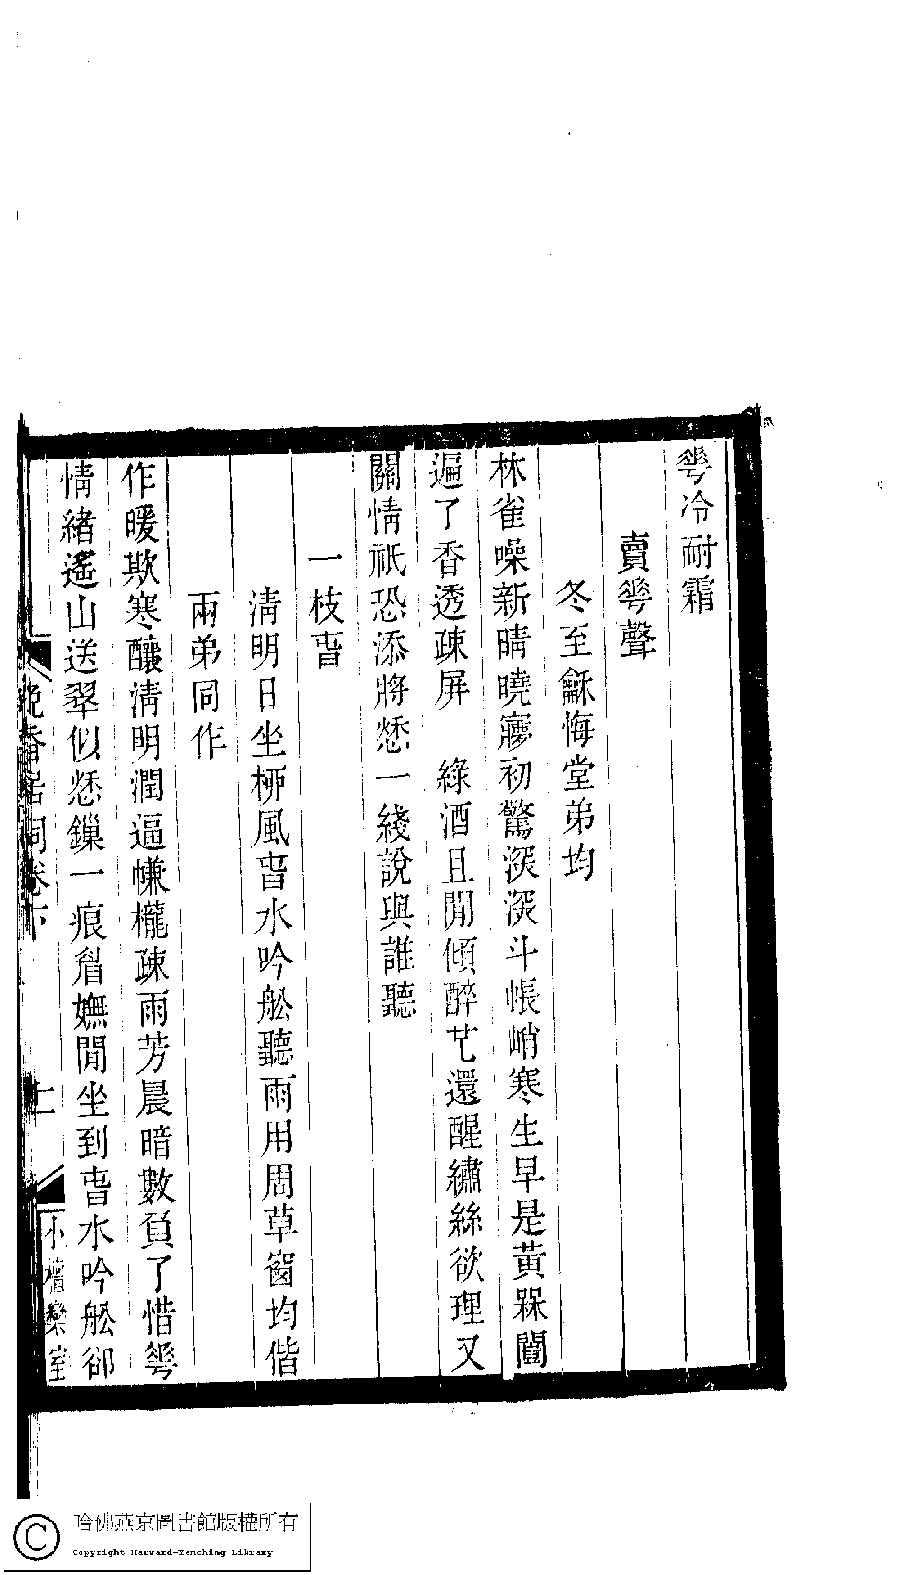 芲冷耐霜
賣芲聲
冬至龢悔堂弟均
林雀噪新晴曉寢初驚深深斗帳峭寒生早是黃槑開
遍了香透疎屏　綠酒且閒傾醉芅還醒繡絲欲理又
關情祇恐添將愁一綫說與誰聽
一枝旾
淸明日坐桺風旾水吟舩聽雨用周草窗均偕
兩弟同作
作暖欺寒釀淸明潤逼㡘櫳疎雨芳晨暗數負了惜芲
情緒遙山送翠似愁鏁一痕眉嫵閒坐到旾水吟舩卻
晚香居詞卷下
小檀欒室
哈佛燕京圖書館版權所有
Copyright Harvard-Yenching Library